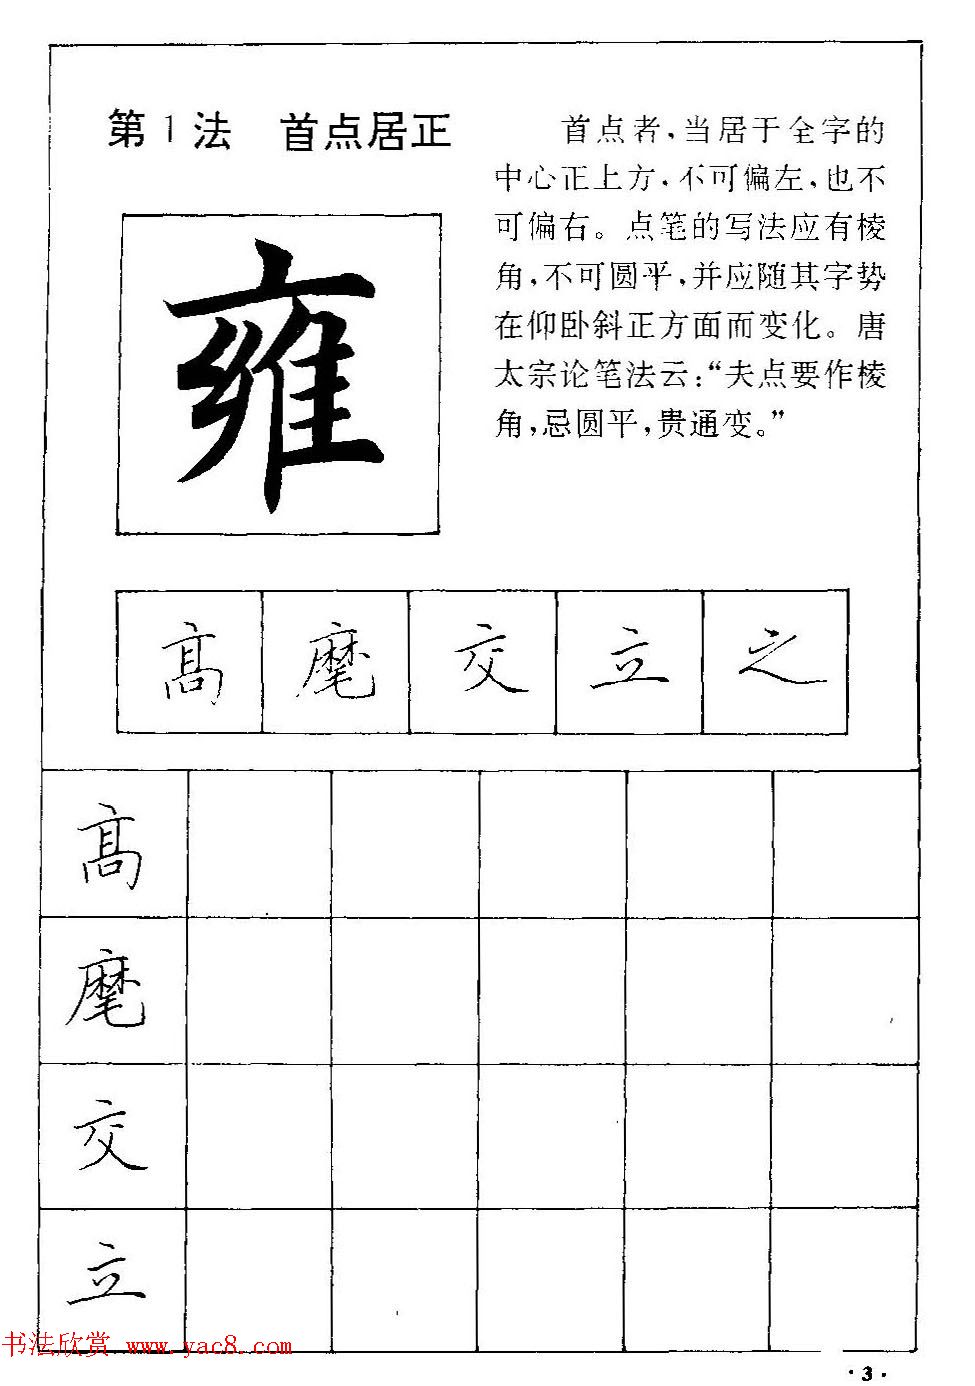 第1法 首点居正
首点者，当居于全字的
中心正上方，不可偏左，也不
可偏右。点笔的写法应有棱
角，不可圆平，并应随其字势
在仰卧斜正方面而变化。唐
太宗论笔法云：“夫点要作棱
角，忌圆平，贵通变。”
雍
髙 麾 交 立 之
髙
麾
交
立
书法欣赏 www.yac8.com
·3·